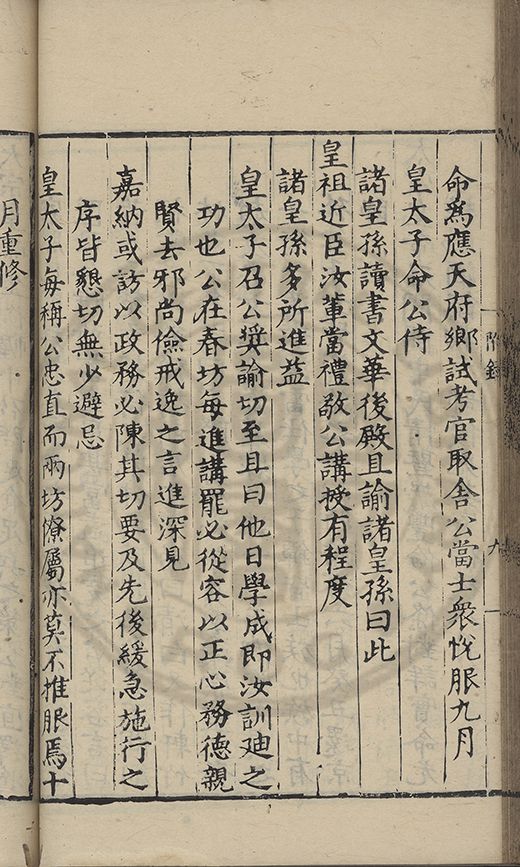 命為應天府鄉試考官取舍公當士衆悅服九月
皇太子命公侍
諸皇孫讀書文華後殿且諭諸皇孫曰此
皇祖近臣汝輩當禮敬公講授有程度
諸皇孫多所進益
皇太子召公奬諭切至且曰他日學成即汝訓廸之
功也公在春坊每進講罷必從容以正心務德親
賢去邪尚儉戒逸之言進深見
嘉納或訪以政務必陳其切要及先後緩急施行之
序皆懇切無少避忌
皇太子每稱公忠直而兩坊僚屬亦莫不推服焉十
月重修
附録
九